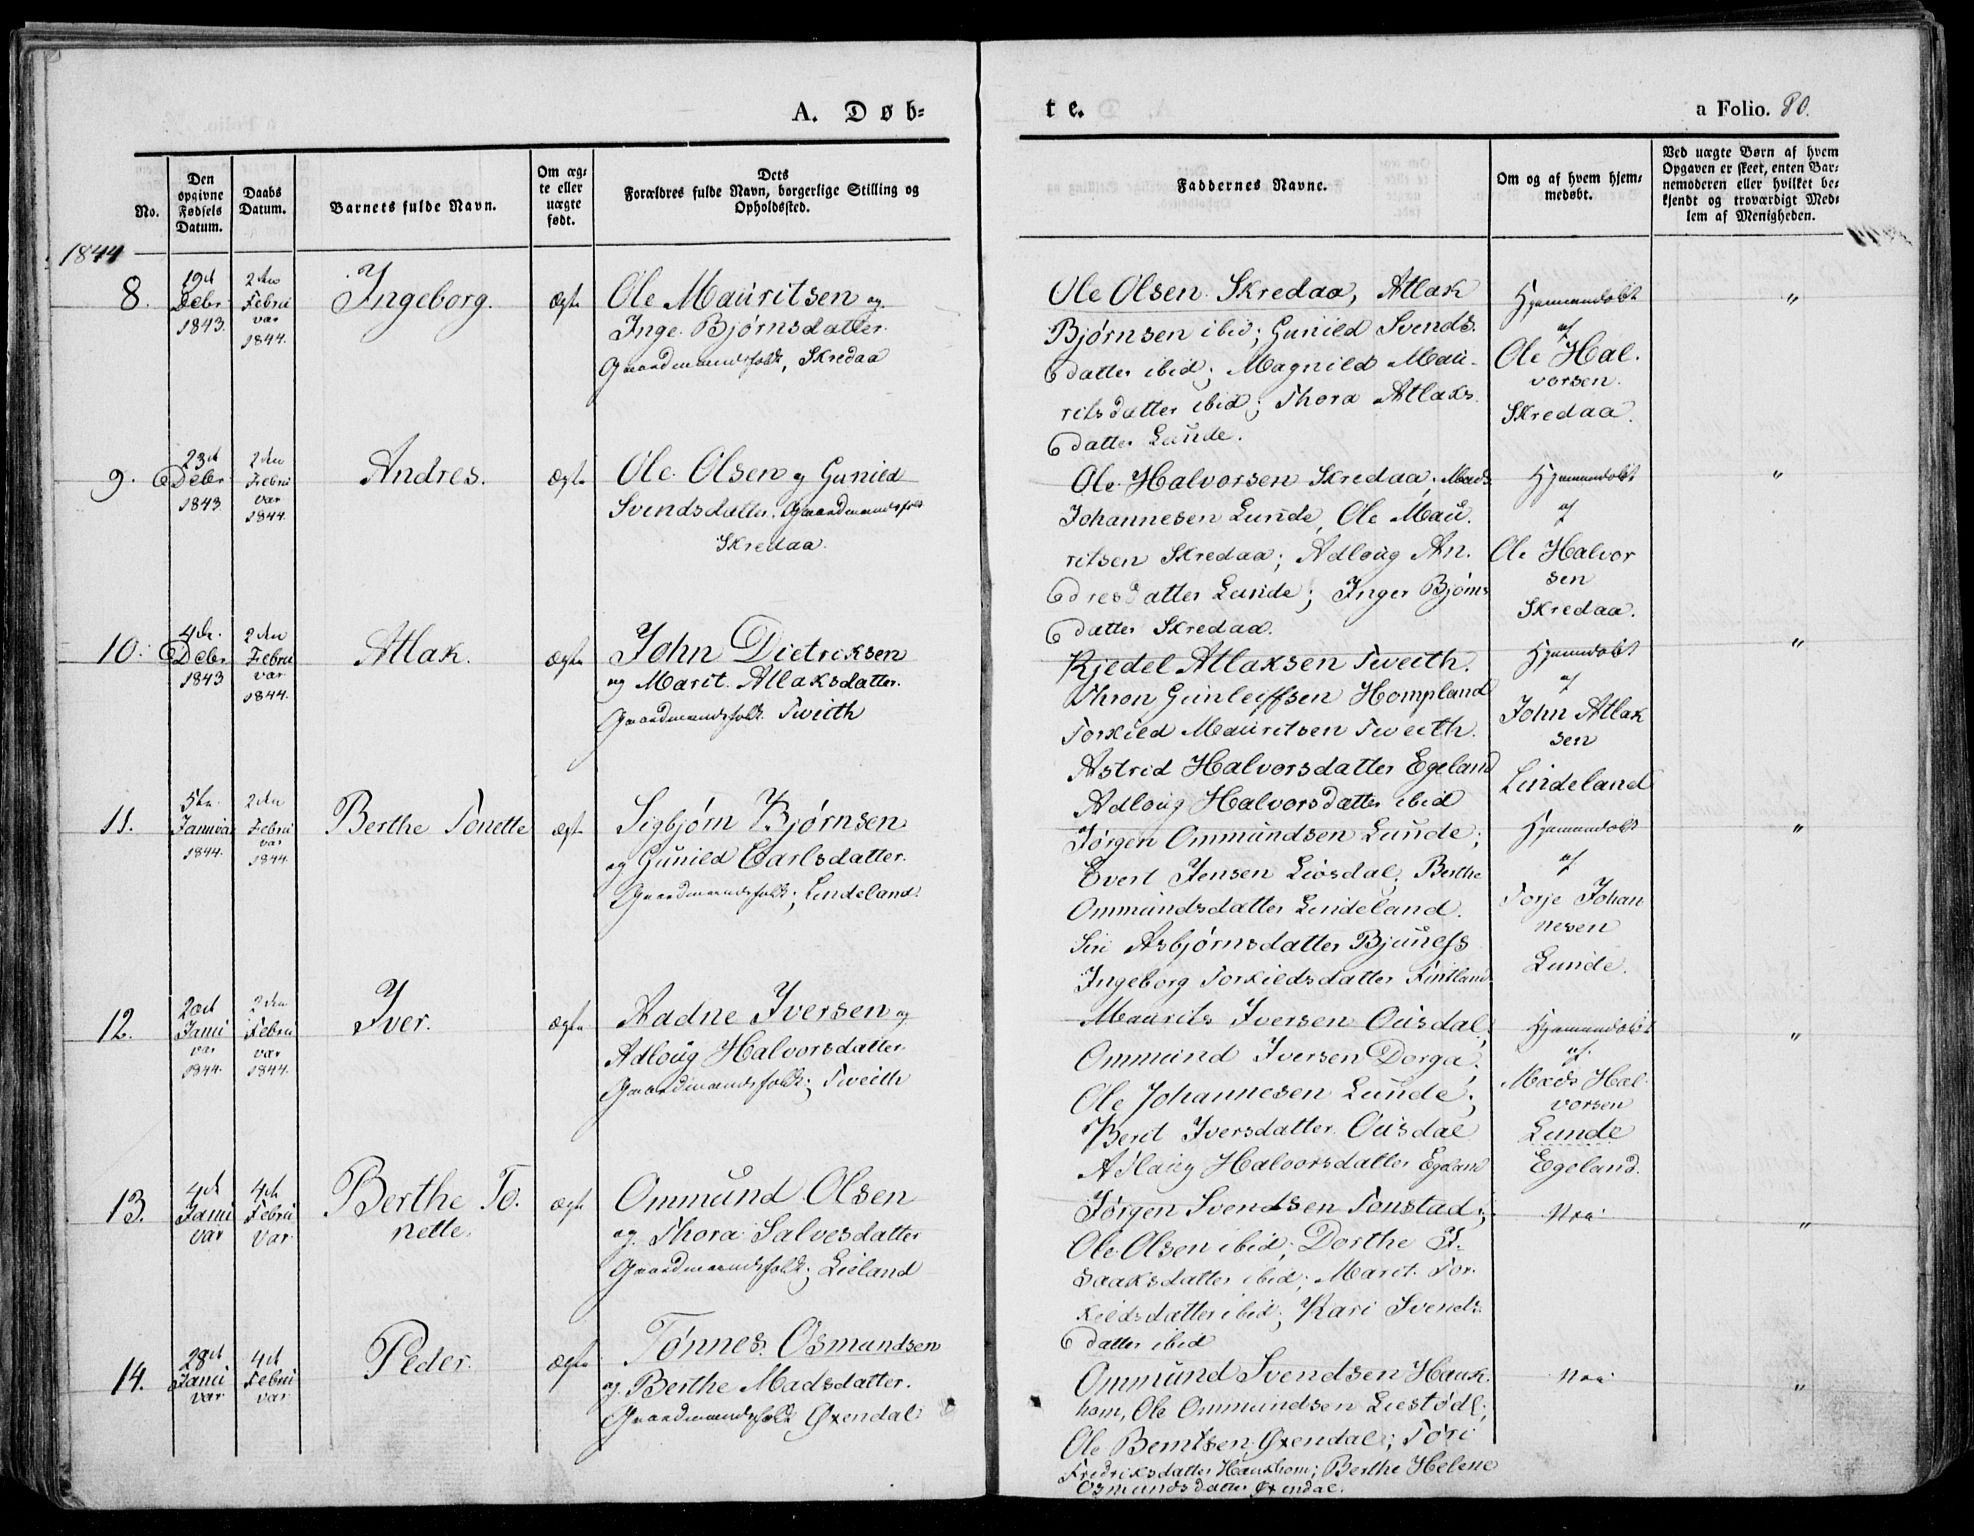 A. Døb-
te.
a Folio. 80.
No.
Den
opgivne
Fødsels
Datum.
Daabs
Datum.
Barnets fulde Navn.
Om æg-
te eller
uægte
født.
Dets
Forældres fulde Navn, borgerlige Stilling og
Opholdssted.
Faddernes Navne.
Om og af hvem hjem-
medøbt.
Ved uægte Børn af hvem
Opgaven er skeet, enten Bar-
nemoderen eller hvilket be-
kjendt og troværdigt Med-
lem af Menigheden.
1844
8.
19de
Debr
1843.
2den
Febru
var
1844.
Ingeborg.
Ægte
Ole Mauritsen og
Inge Bjørnsdatter.
Gaardmandsfolk, Skredaa
Ole Olsen Skredaa, Atlak
Bjørnsen ibid; Gunild Svends-
datter ibid; Magnild Mau-
ritsdatter ibid; Thora Atlaks-
datter Lunde.
Hjemmedøbt
af
Ole Hal-
vorsen.
Skredaa.
"
9.
23de
Debr
1843.
2den
Febru
var
1844.
Andres.
Ægte
Ole Olsen og Gunild
Svendsdatter. Gaardmandsfolk
Skredaa.
Ole Halvorsen Skredaa; Mads
Johannesen Lunde, Ole Mau-
ritsen Skredaa; Adloug An-
dresdatter Lunde; Inger Bjørns
datter Skredaa.
Hjemmedøbt
af
Ole Halvor
sen
Skredaa.
"
10.
4de
Debr
1843
2den
Febru
var
1844.
Atlak.
Ægte
John Dietriksen
og Marit Atlaksdatter.
Gaardmandsfolk Tweith
Kjedel Atlaksen Tweith.
Thron Gunleiffsen Hompland
Torkild Mauritsen Tweith.
Astrid Halvorsdatter Egeland
Adloug Halvorsdatter ibid
Hjemmedøbt
af
John Atlak
sen
Lindeland
"
11.
5te
Janua
1844.
2den
Febru
var
1844.
Berthe Tonette
Ægte
Sigbjørn Bjørnsen
og Gunild Carlsdatter.
Gaardmandsfolk; Lindeland.
Jørgen Ommundsen Lunde;
Evert Jensen Liosdal; Berthe
Ommundsdatter Lindeland.
Siri Asbjørnsdatter Bjunefs
Ingeborg Torkildsdatter Fintland
Hjemmedøbt
af
Torje Johan
nesen
Lunde.
"
12.
20de
Janu
var
1844.
2den
Febru
var
1844.
Iver.
Ægte
Aadne Iversen og
Adloug Halvorsdatter
Gaardmandsfolk; Tweith
Maurits Iversen Ousdal;
Ommund Iversen Dorga;
Ole Johannesen Lunde;
Berit Iversdatter Ousdal
Adlaug Halvorsdatter Egeland
Hjemmedøbt
af
Mads Hal-
vorsen
Lunde
Egeland.
"
13.
4de
Janu
var
4de
Febru
var
Berthe To-
nette.
Ægte
Ommund Olsen
og Thora Salvesdatter
Gaardmandsfolk; Lieland
Jørgen Svendsen Tonstad;
Ole Olsen ibid; Dorthe I-
saaksdatter ibid; Marit Tor-
kildsdatter ibid; Kari Svends-
datter ibid
Nei
"
14.
28de
Janu
var
4de
Febru
var
Peder.
Ægte
Tønnes Osmundsen
og Berthe Madsdatter.
Gaardmandsfolk Øxendal
Ommund Svendsen Hauk-
hom, Ole Ommundsen Liestødl;
Ole Berntsen Øxendal; Tøri
Fredriksdatter Haukhom; Berthe Helene
Osmundsdatter Øxendal.
Nei
"